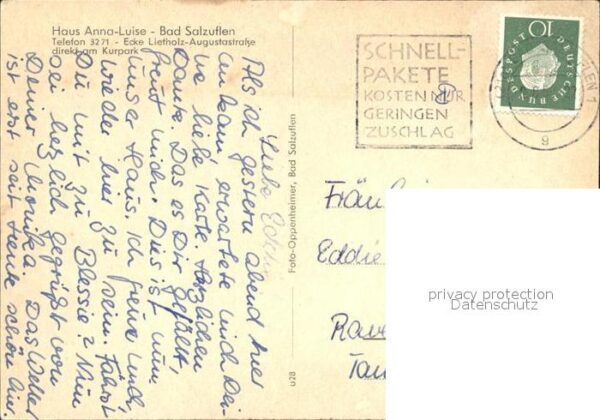 Haus Anna-Luise - Bad Salzuflen
Telefon 3271 - Ecke Lietholz-Augustastraße
direkt am Kurpark
Liebe Eddie
Als ich gestern abend hier
ankam erwartete mich Dei-
ne liebe Karte. Herzlichen
Danke. Das es Dir gefällt,
freut mich. Dies ist nun
unser Haus. Ich freue mich,
wieder hier zu sein. Fährst
Du mit zu Blessie? Nun
sei herzlich gegrüßt von
Deiner Monika. Das Wetter
ist erst seit heute schön hier
Foto-Oppenheimer, Bad Salzuflen
u28
SCHNELL-
PAKETE
KOSTEN NUR
GERINGEN
ZUSCHLAG
10
DEUTSCHE BUNDESPOST
g
Fräulein
Eddie
Rav
Tau
privacy protection
Datenschutz